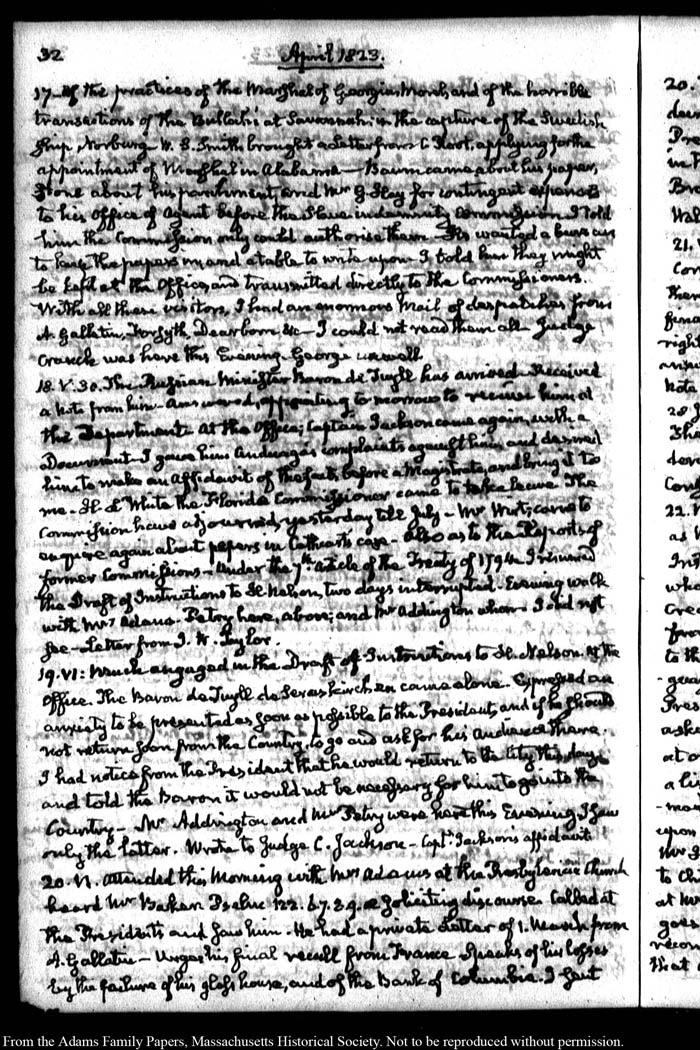 32 April 1823.
17- of the practices of the Marshal of Georgia, Morel, and of the horrible
transactions of the Bulloch's at Savannah: in the capture of the Swedish
Ship Norburg W. B. Smith brought a Letter from C. Root, applying for the
appointment of Marshal in Alabama— Baum came about his papers,
Stone about his parchment, and Mr G. Hay for contingent expences
to his Office of Agent before the Slave indemnity Commission I told
him the Commission only could authorise them— He wanted a bureau
to keep the papers in, and a table to write upon I told him they might
be kept at the Office, and transmitted directly to the Commissioners.
With all these visitors, I had an enormous Mail of despatches from
A. Gallatin, Forsyth, Dearborn, &c— I could not read them all Judge
Cranch was here this Evening. George unwell
18. V: 30. The Russian Minister Baron de Tuyll has arrived. Received
a Note from him— Answered, appointing to morrow to receive him at
the Department. At the Office; Captain Jackson came again, with a
Document— I gave him Anduaga's complaints against him, and desired
him to make an Affidavit of the facts, before a Magistrate, and bring it to
me— H. L. White the Florida Commissioner came to take leave The
Commission have adjourned, yesterday till July— Mr Wirt; came to
enquire again about papers in Cathcart's case— Also as to the Reports of
former Commissions— Under the 7th article of the Treaty of 1794. I resumed
the Draft of Instructions to H. Nelson, two days interrupted. Evening walk
with Mrs Adams. Petry here, above; and Mr Addington whom I did not
see— Letter from J. W. Taylor.
19. VI: Much engaged in the Draft of Instructions to H. Nelson. At the
Office. The Baron de Tuyll de Serooskerken came alone. Expressed an
anxiety to be presented as soon as possible to the President, and if he should
not return soon from the Country, to go and ask for his Audience there.
I had notice from the President that he would return to the City this day
and told the Baron it would not be necessary for him to go into the
Country— Mr Addington and Mr Petry were here this Evening, I saw
only the latter. Wrote to Judge C. Jackson— Capt. Jackson's affidavit
20. VI. Attended this Morning with Mrs Adams at the Presbyterian Church
heard Mr Baker. Psalm 122. 6.7.8.9. a soliciting discourse. Called at
the President's and saw him— He had a private Letter of 1. March from
A. Gallatin— Urges his final recall from France Speaks of his losses
by the failure of his glass house, and of the Bank of Columbia. I sent
20.
21.
22.
From the Adams Family Papers, Massachusetts Historical Society. Not to be reproduced without permission.